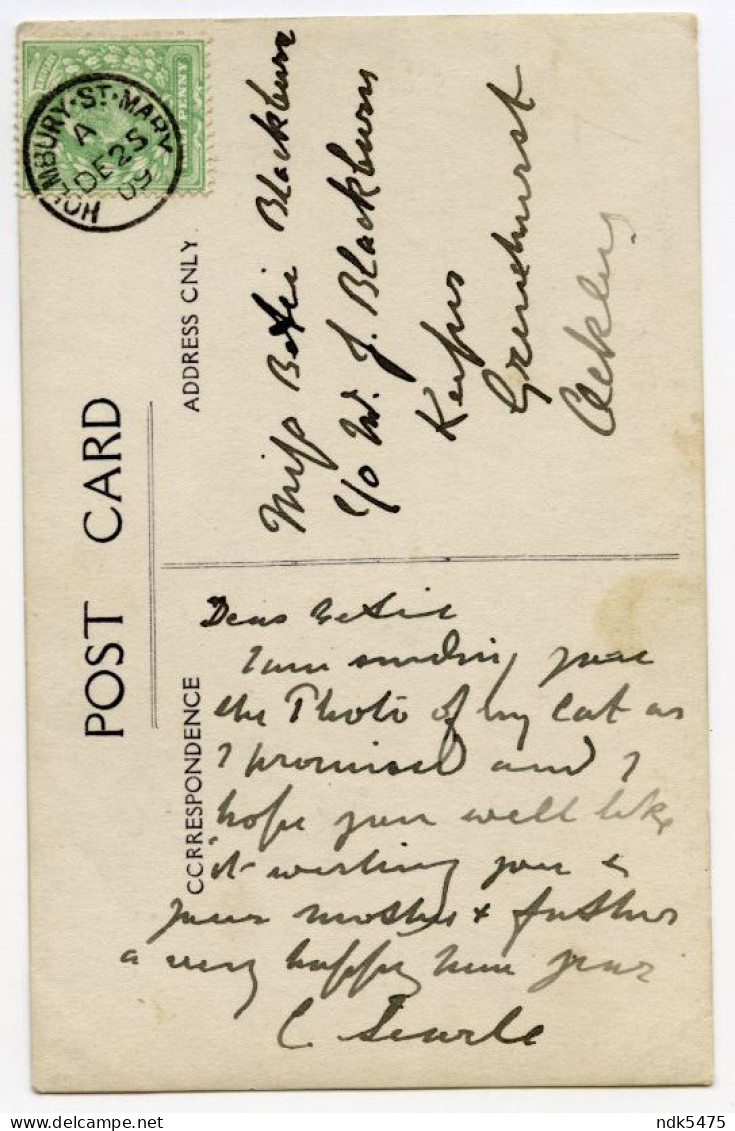 HALF PENNY
HOLMBURY·ST·MARY
A
DE 25
09
POST CARD
ADDRESS ONLY.
Miss Bessie Blackburn
c/o W. J. Blackburn
Greenhurst
Ockley
CORRESPONDENCE
Dear Bessie
I am sending you
the Photo of my Cat as
I promised and I
hope you will like
it wishing you &
your mother & father
a very happy new year
C Searle
ndk5475